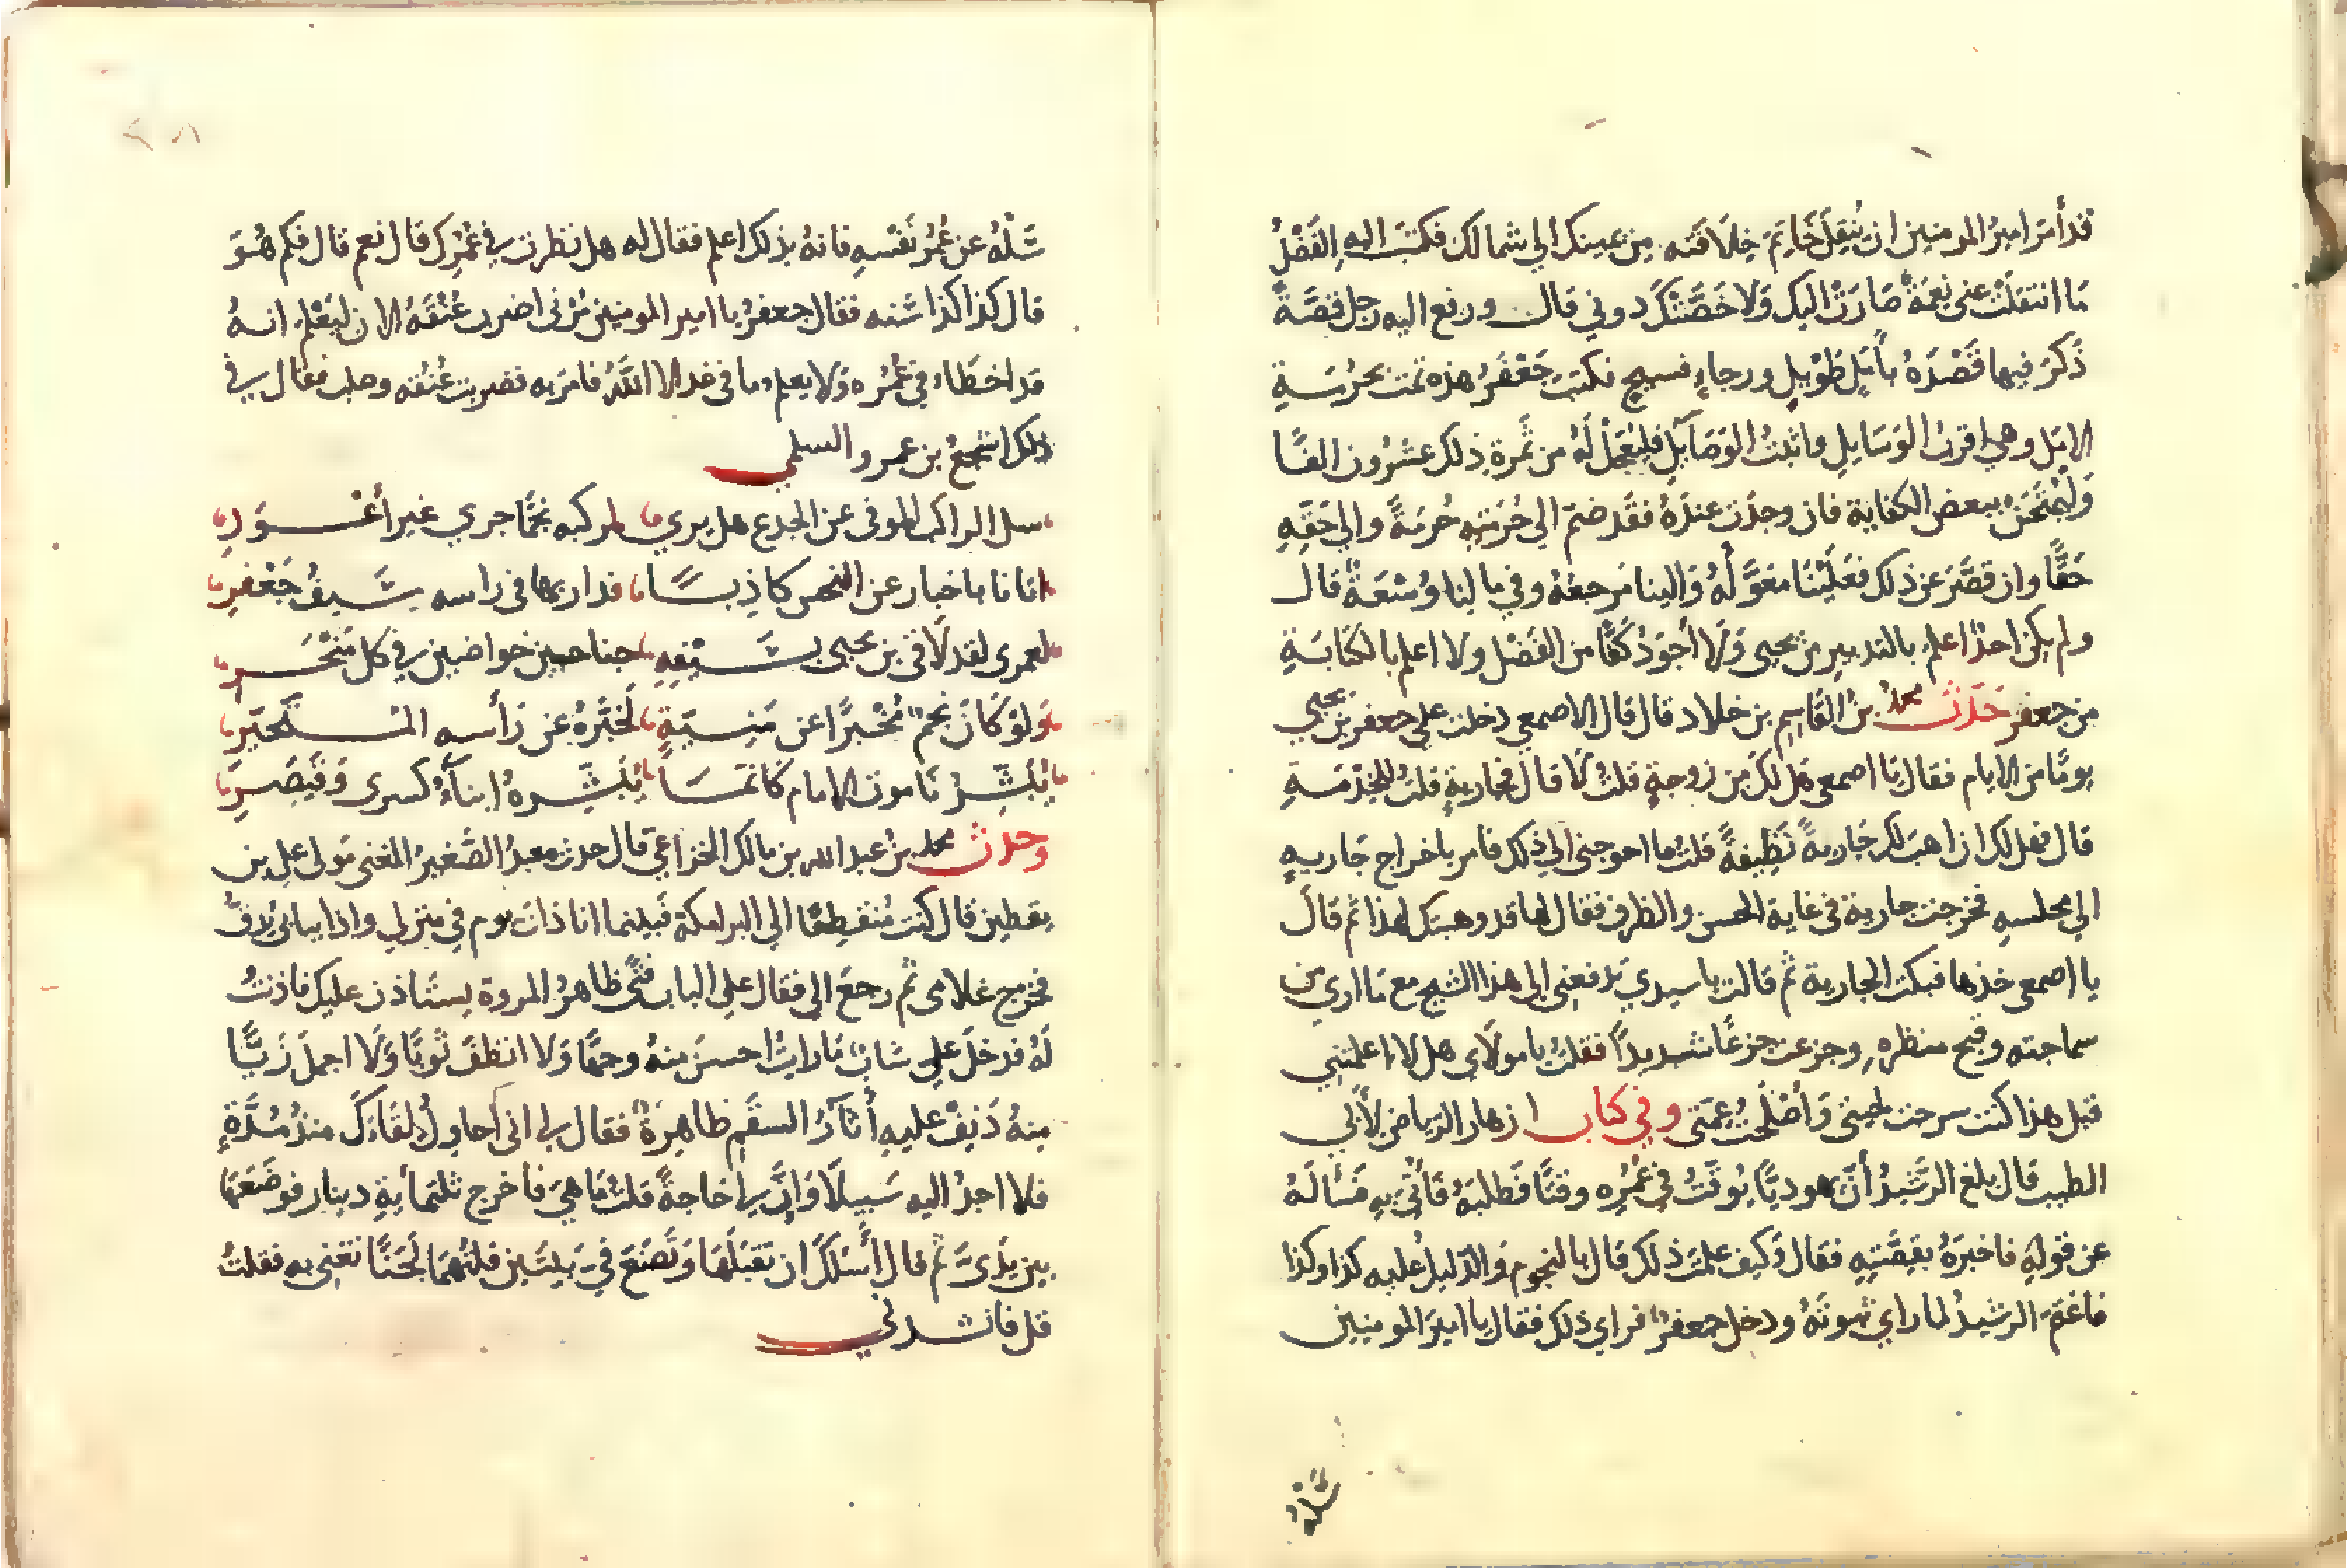 قد أمر امير المومنين ان ينقل خاتم خلافته من يمينك الي شمالك فكتب اليه الفضل
ما انتقلت عني نعمة صارت اليك ولا خصتك دوني قال ورفع اليه رجل قصة
ذكر فيها قصده بأمل طويل ورجاء فسيح فكتب جعفر هذه تمت بحرمة
الامل وهي اقرب الوسايل واثبت الوصايل فليعجل له من ثمرة ذلك عشرون الفا
وليمتحن ببعض الكفاية فان وجدت عنده فقد ضم الي حرمته حرمة والي حقه
حقا وان قصر عن ذلك فعلينا معوله والينا مرجعه وفي مالنا وسعة قال
ولم يكن احد اعلم بالتدبير من يحيى ولا أجود كفا من الفضل ولا اعلم بالكتابة
من جعفر حدث محمد بن القاسم بن خلاد قال قال الاصمعي دخلت علي جعفر بن يحيي
يوما من الايام فقال يا اصمعي هل لك من زوجة قلت لا قال فجارية قلت للخدمة
قال فهل لك ان اهب لك جارية نظيفة قلت ما احوجني الي ذلك فامر باخراج جاريه
الي مجلسه فخرجت جارية في غاية الحسن والظرف فقال لها قد وهبتك لهذا ثم قال
يا اصمعي خذها فبكت الجارية ثم قالت يا سيدي تدفعني الى هذا الشيخ مع ما اري من
سماجته وقبح منظره وجزعت جزعا شديدا فقلت يا مولاي هل لا اعلمتني
قبل هذا كنت سرحت لحيتي وأصلحت عمتي وفي كتاب ازهار الرياض لأبي
الطيب قال بلغ الرشيد أن يهوديا يوقت في عمره وقتا فطلبه فأتي به فسأله
عن قوله فاخبره بقصته فقال وكيف علمت ذلك قال بالنجوم والدليل عليه كذا وكذا
فاغتم الرشيد لما راي ثبوته ودخل جعفر فراي ذلك فقال يا امير المومنين
سله
سله عن عمر نفسه فانه بذلك اعلم فقال له هل نظرت في عمرك قال نعم قال فكم هو
قال كذا كذا سنه فقال جعفر يا امير المومنين مرني اضرب عنقه الان ليعلم انه
قد اخطاء في عمره ولا يعلم ما في غد الا الله فامر به فضربت عنقه وصلب فقال في
ذلك اشجع بن عمرو السلمي
سل الراكب الموفي عن الجدع هل يري لمركبه نجما جري غير أغور
اتانا باخبار عن النحس كاذبا فدار بها في راسه سيف جعفر
لعمري لقد لاقى بن يحيى بسيفه جناحين خواضين في كل منحر
ولو كان نجم مخبرا عن منية لخبره عن رأسه المتحير
يبشرنا موت الامام كانما يبشره ابناء كسرى وقيصر
وحدث محمد بن عبد الله بن مالك الخزاعي قال حدث معبد الصغير المغني مولى علي بن
يقطين قال كنت منقطعا الي البرامكة فبينما انا ذات يوم في منزلي واذا ببابي يدق
فخرج غلامي ثم رجع الي فقال علي الباب فتى ظاهر المروة يستاذن عليك فاذنت
له فدخل علي شاب ما رايت احسن منه وجها ولا انظف ثوبا ولا اجمل زيا
منه دنف عليه أثار السقم ظاهرة فقال لي اني احاول لقاءك منذ مدة
فلا اجد اليه سبيلا وان لي حاجة قلت ما هي فاخرج ثلثماية دينار فوضعها
بين يدي ثم قال أسلك ان تقبلها وتصنع في بيتين قلتهما لحنا تغني به فقلت
قل فانشدني